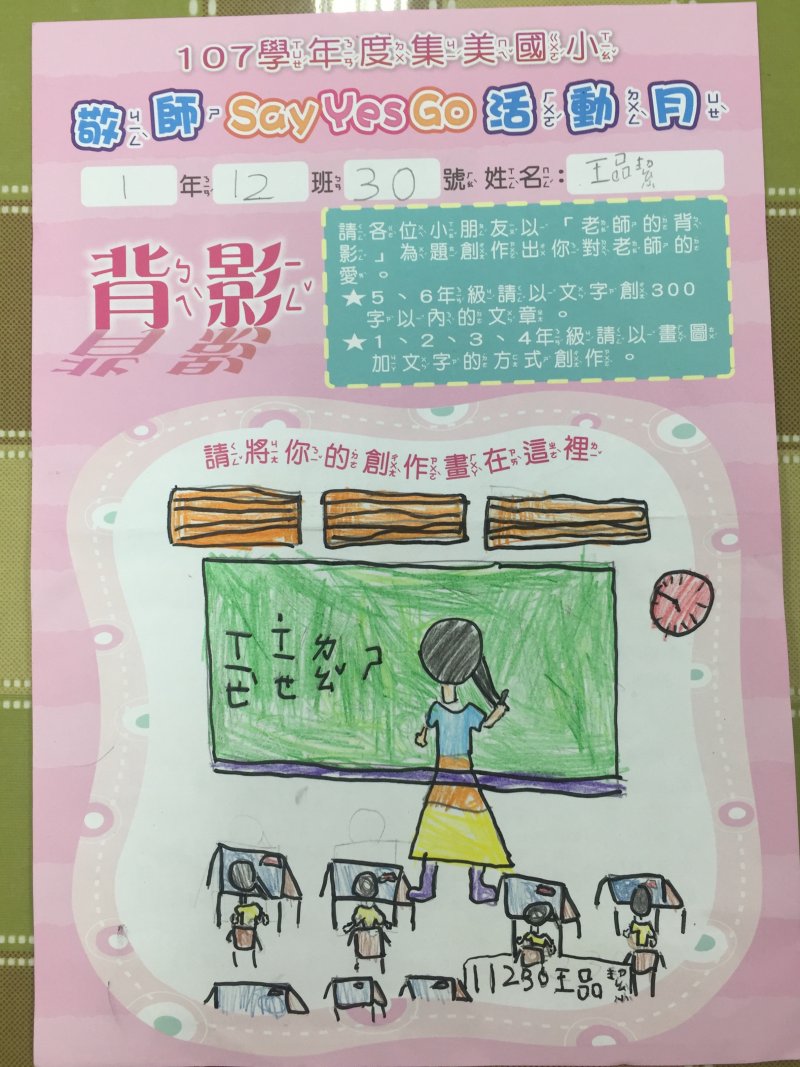 107學年度集美國小
敬師SayYesGo活動月
1年12班30號 姓名：王品絜
背影
請各位小朋友以「老師的背
影」為題創作出你對老師的
愛。
★5、6年級請以文字創300
字以內的文章。
★1、2、3、4年級請以畫圖
加文字的方式創作。
請將你的創作畫在這裡
ㄒㄧㄝˋ ˙ㄒㄧㄝ ㄌㄠˇ ㄕ
11230王品絜